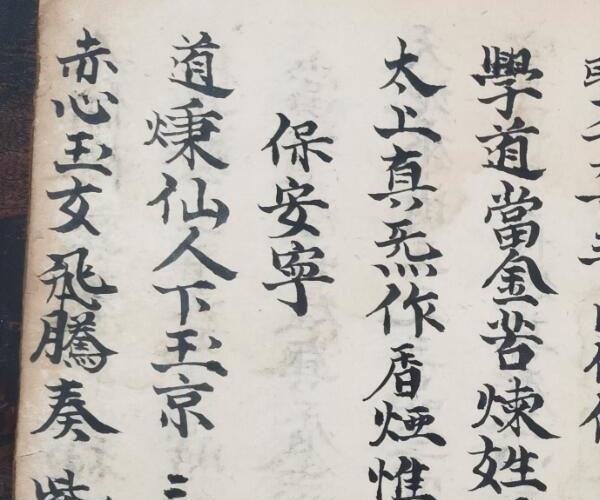 學道當金苦煉姓
太上真炁作香煙惟
保安寧
道煉仙人下玉京三
赤心玉女飛騰奏紫